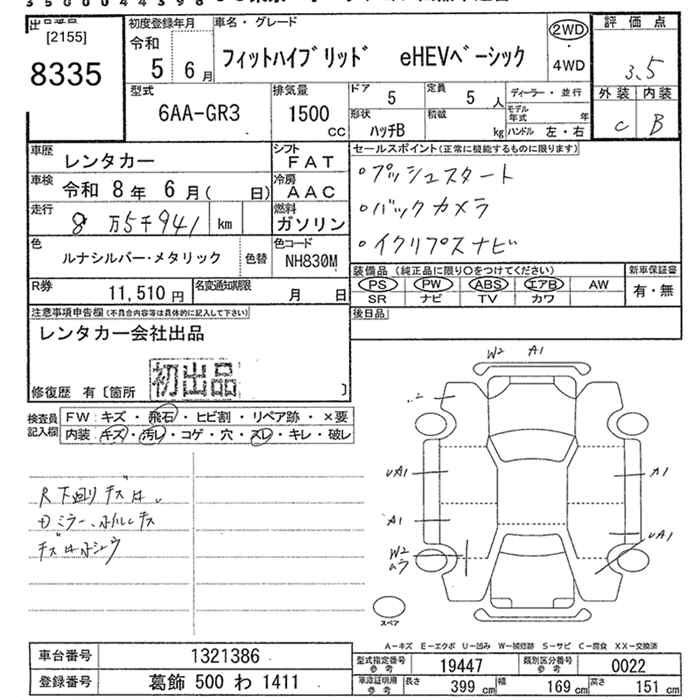 出品番号 初度登録年月 車名・グレード 評価点
[2155] 令和
8335 5 6 月 フィットハイブリッド eHEVベーシック 2WD ・ 4WD 3.5
型式 排気量 ドア 5 定員 5 人 ディーラー・並行 外装 内装
6AA-GR3 1500 CC 形状 ハッチB 積載 kg モデル年式 年 ハンドル 左・右 C B
車歴 レンタカー シフト FAT セールスポイント(正常に機能するものに限ります)
車検 令和 8 年 6 月( 日) 冷房 AAC ・プッシュスタート
走行 8 万5千941 km 燃料 ガソリン ・バックカメラ
色 ルナシルバー・メタリック 色替 色コード NH830M ・イクリプスナビ
装備品 (純正品に限り○をつけてください) 新車保証書
PS PW ABS エアB AW 有・無
SR ナビ TV カワ
R券 11,510 円 名変通知期限 月 日
後日品
注意事項申告欄(不具合内容等は具体的に記入して下さい)
レンタカー会社出品
初出品
修復歴 有〔箇所 〕
検査員記入欄 FW:キズ・飛石・ヒビ割・リペア跡・×要
内装:キズ・汚レ・コゲ・穴・スレ・キレ・破レ
W2 A1
UA1 A1
A1 UA1
W2
ムラ
R下廻りキズ
キズ
スペア
A-キズ E-エクボ U-凹み W-補修跡 S-サビ C-腐食 XX-交換済
車台番号 1321386 型式指定番号 参考 19447 類別区分番号 参考 0022
登録番号 葛飾 500 わ 1411 車庫証明用 参考 長さ 399 cm 幅 169 cm 高さ 151 cm